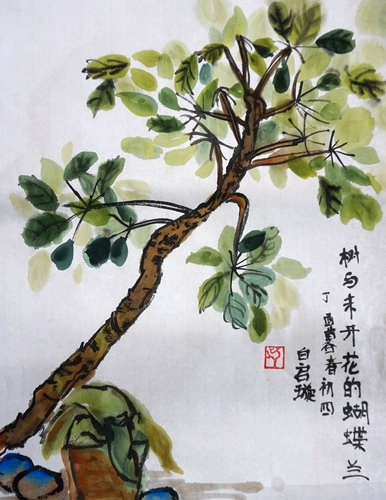 树与未开花的蝴蝶兰
丁酉暮春初四
白 璇